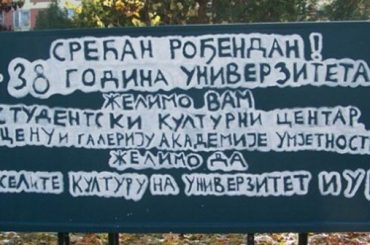 СРЕЋАН РОЂЕНДАН!
38 ГОДИНА УНИВЕРЗИТЕТА
ЖЕЛИМО ВАМ
СТУДЕНТСКИ КУЛТУРНИ ЦЕНТАР
И ГАЛЕРИЈУ АКАДЕМИЈЕ
ЖЕЛИМО ДА
КУЛТУРУ НА УНИВЕРЗИТЕТ И У